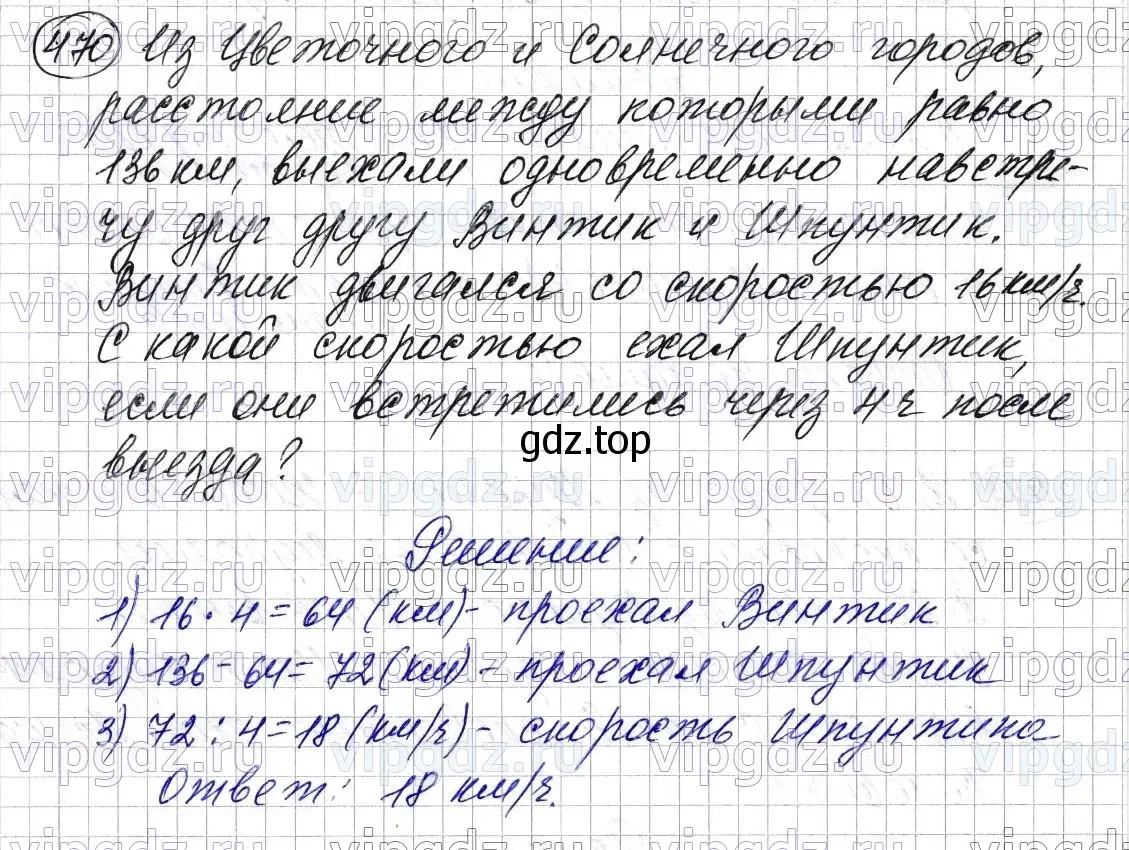 470 Из Цветочного и Солнечного городов,
расстояние между которыми равно
136 км, выехали одновременно навстре-
чу друг другу Винтик и Шпунтик.
Винтик двигался со скоростью 16 км/ч.
С какой скоростью ехал Шпунтик,
если они встретились через 4 ч после
gdz.top
выезда?
Решение:
1) 16 · 4 = 64 (км) - проехал Винтик
2) 136 - 64 = 72 (км) - проехал Шпунтик
3) 72 : 4 = 18 (км/ч) - скорость Шпунтика
Ответ: 18 км/ч.
vipgdz.ru